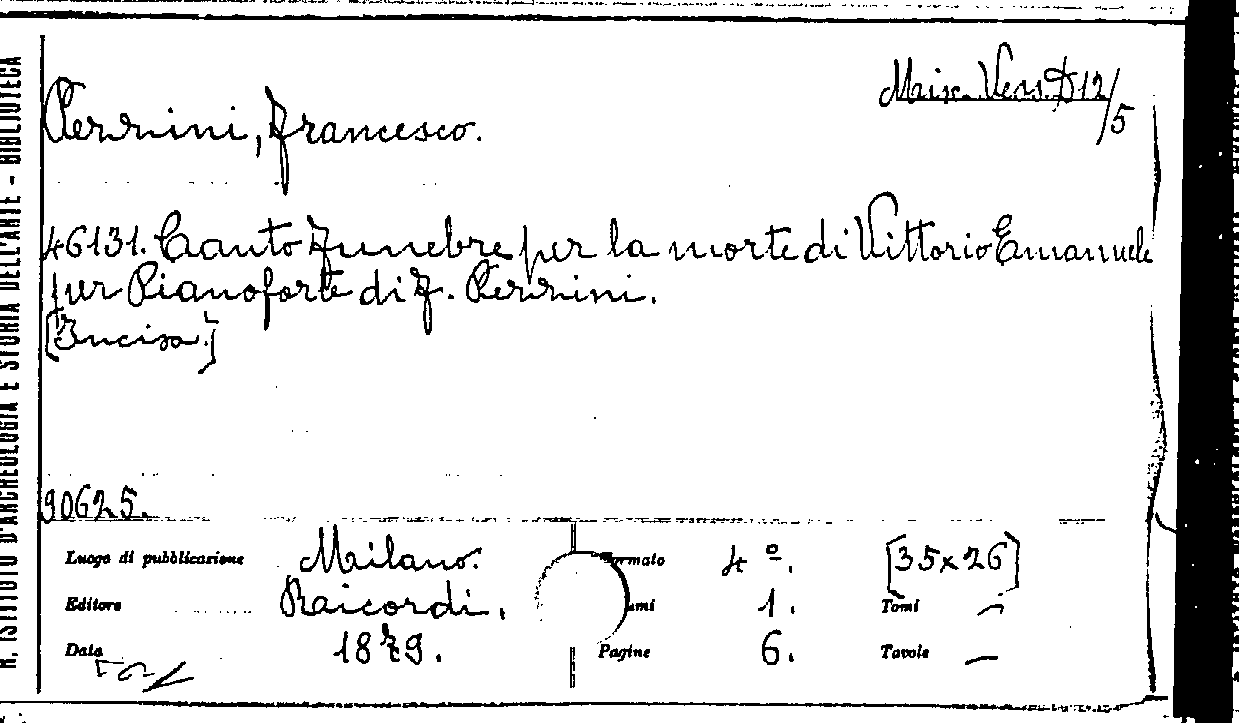 R. ISTITUTO D'ARCHEOLOGIA E STORIA DELL'ARTE - BIBLIOTECA
Misc. Vers. D 12/5
Perrini, Francesco.
46131. Canto Funebre per la morte di Vittorio Emanuele
per Pianoforte di F. Perrini.
[Incisa.]
90625.
Luogo di pubblicazione Milano. Formato 4º. [35x26]
Editore Raicordi. umi 1. Tomi —
Data 1879. Pagine 6. Tavole —